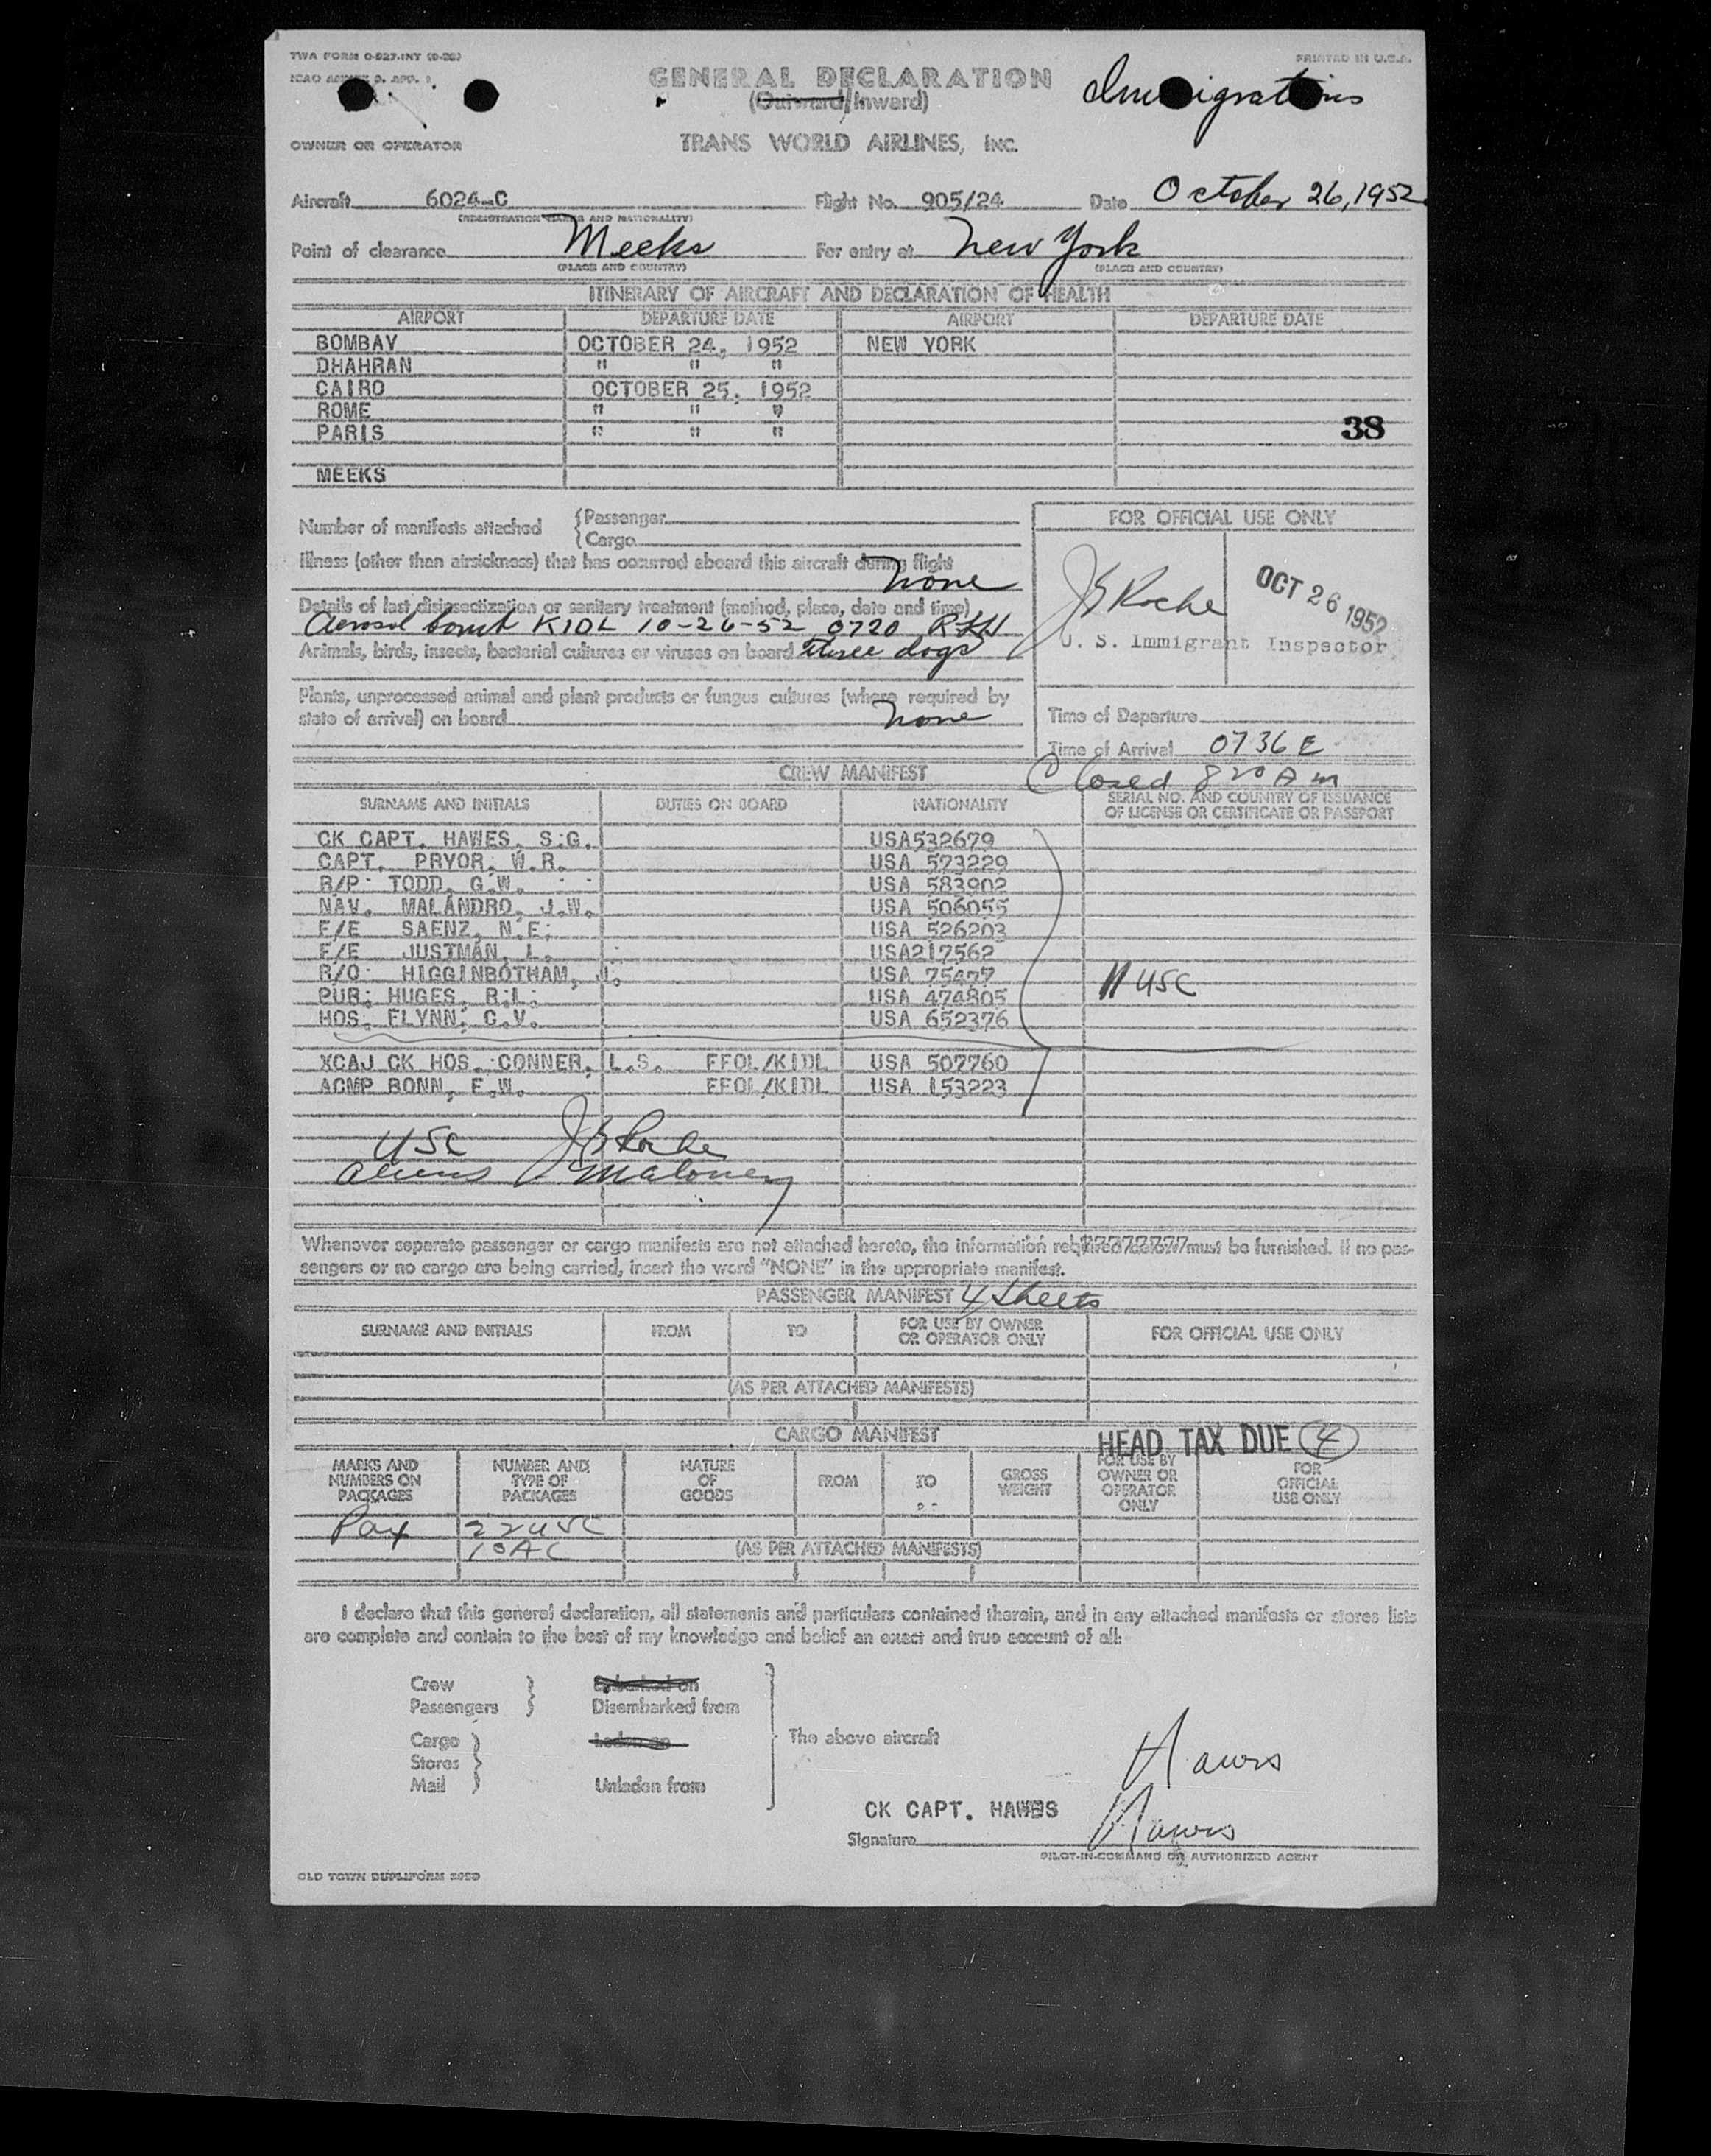 TWA FORM O-827-INT
PRINTED IN U.S.A.
ICAO ANNEX 9. APP. 1
GENERAL DECLARATION
(Outward/Inward)
Immigrations
OWNER OR OPERATOR
TRANS WORLD AIRLINES, INC.
Aircraft 6024-C Flight No. 905/24 Date October 26, 1952
(REGISTRATION MARKS AND NATIONALITY)
Point of clearance Meeks For entry at New York
(PLACE AND COUNTRY) (PLACE AND COUNTRY)
ITINERARY OF AIRCRAFT AND DECLARATION OF HEALTH
AIRPORT DEPARTURE DATE AIRPORT DEPARTURE DATE
BOMBAY OCTOBER 24, 1952 NEW YORK
DHAHRAN " " "
CAIRO OCTOBER 25, 1952
ROME " " "
PARIS " " " 38
MEEKS
Number of manifests attached {Passenger
{Cargo
FOR OFFICIAL USE ONLY
Illness (other than airsickness) that has occurred aboard this aircraft during flight
none
Details of last disinsectization or sanitary treatment (method, place, date and time)
Aerosol bomb KIDL 10-26-52 0720
Animals, birds, insects, bacterial cultures or viruses on board three dogs
J E Roche OCT 26 1952
U. S. Immigrant Inspector
Plants, unprocessed animal and plant products or fungus cultures (where required by
state of arrival) on board none
Time of Departure
Time of Arrival 0736 E
Closed 820 A m
CREW MANIFEST
SURNAME AND INITIALS DUTIES ON BOARD NATIONALITY SERIAL NO. AND COUNTRY OF ISSUANCE
OF LICENSE OR CERTIFICATE OR PASSPORT
CK CAPT. HAWES, S.G. USA532679
CAPT. PRYOR, W.R. USA 573229
R/P TODD, G.W. USA 583902
NAV. MALANDRO, J.W. USA 506055
F/E SAENZ, N.F. USA 526203
F/E JUSTMAN, L. USA217562
R/O HIGGINBOTHAM, J. USA 75477 11 USC
PUR. HUGES, R.L. USA 474805
HOS. FLYNN, C.V. USA 652376
XCAJ CK HOS. CONNER, L.S. FFOL/KIDL USA 507760
ACMP BONN, F.W. FFOL/KIDL USA 153223
USC J E Roche
aliens J Maloney
Whenever separate passenger or cargo manifests are not attached hereto, the information required below must be furnished. If no pas-
sengers or no cargo are being carried, insert the word "NONE" in the appropriate manifest.
PASSENGER MANIFEST 4 Sheets
SURNAME AND INITIALS FROM TO FOR USE BY OWNER
OR OPERATOR ONLY FOR OFFICIAL USE ONLY
(AS PER ATTACHED MANIFESTS)
CARGO MANIFEST HEAD TAX DUE 4
MARKS AND
NUMBERS ON
PACKAGES NUMBER AND
TYPE OF
PACKAGES NATURE
OF
GOODS FROM TO GROSS
WEIGHT FOR USE BY
OWNER OR
OPERATOR
ONLY FOR
OFFICIAL
USE ONLY
Pax 22 USC
10 AC (AS PER ATTACHED MANIFESTS)
I declare that this general declaration, all statements and particulars contained therein, and in any attached manifests or stores lists
are complete and contain to the best of my knowledge and belief an exact and true account of all:
Crew Embarked on
Passengers Disembarked from
Cargo Laden on The above aircraft
Stores
Mail Unladen from
Hawes
CK CAPT. HAWES
Signature Hawes
PILOT-IN-COMMAND OR AUTHORIZED AGENT
OLD TOWN DUPLIFORM